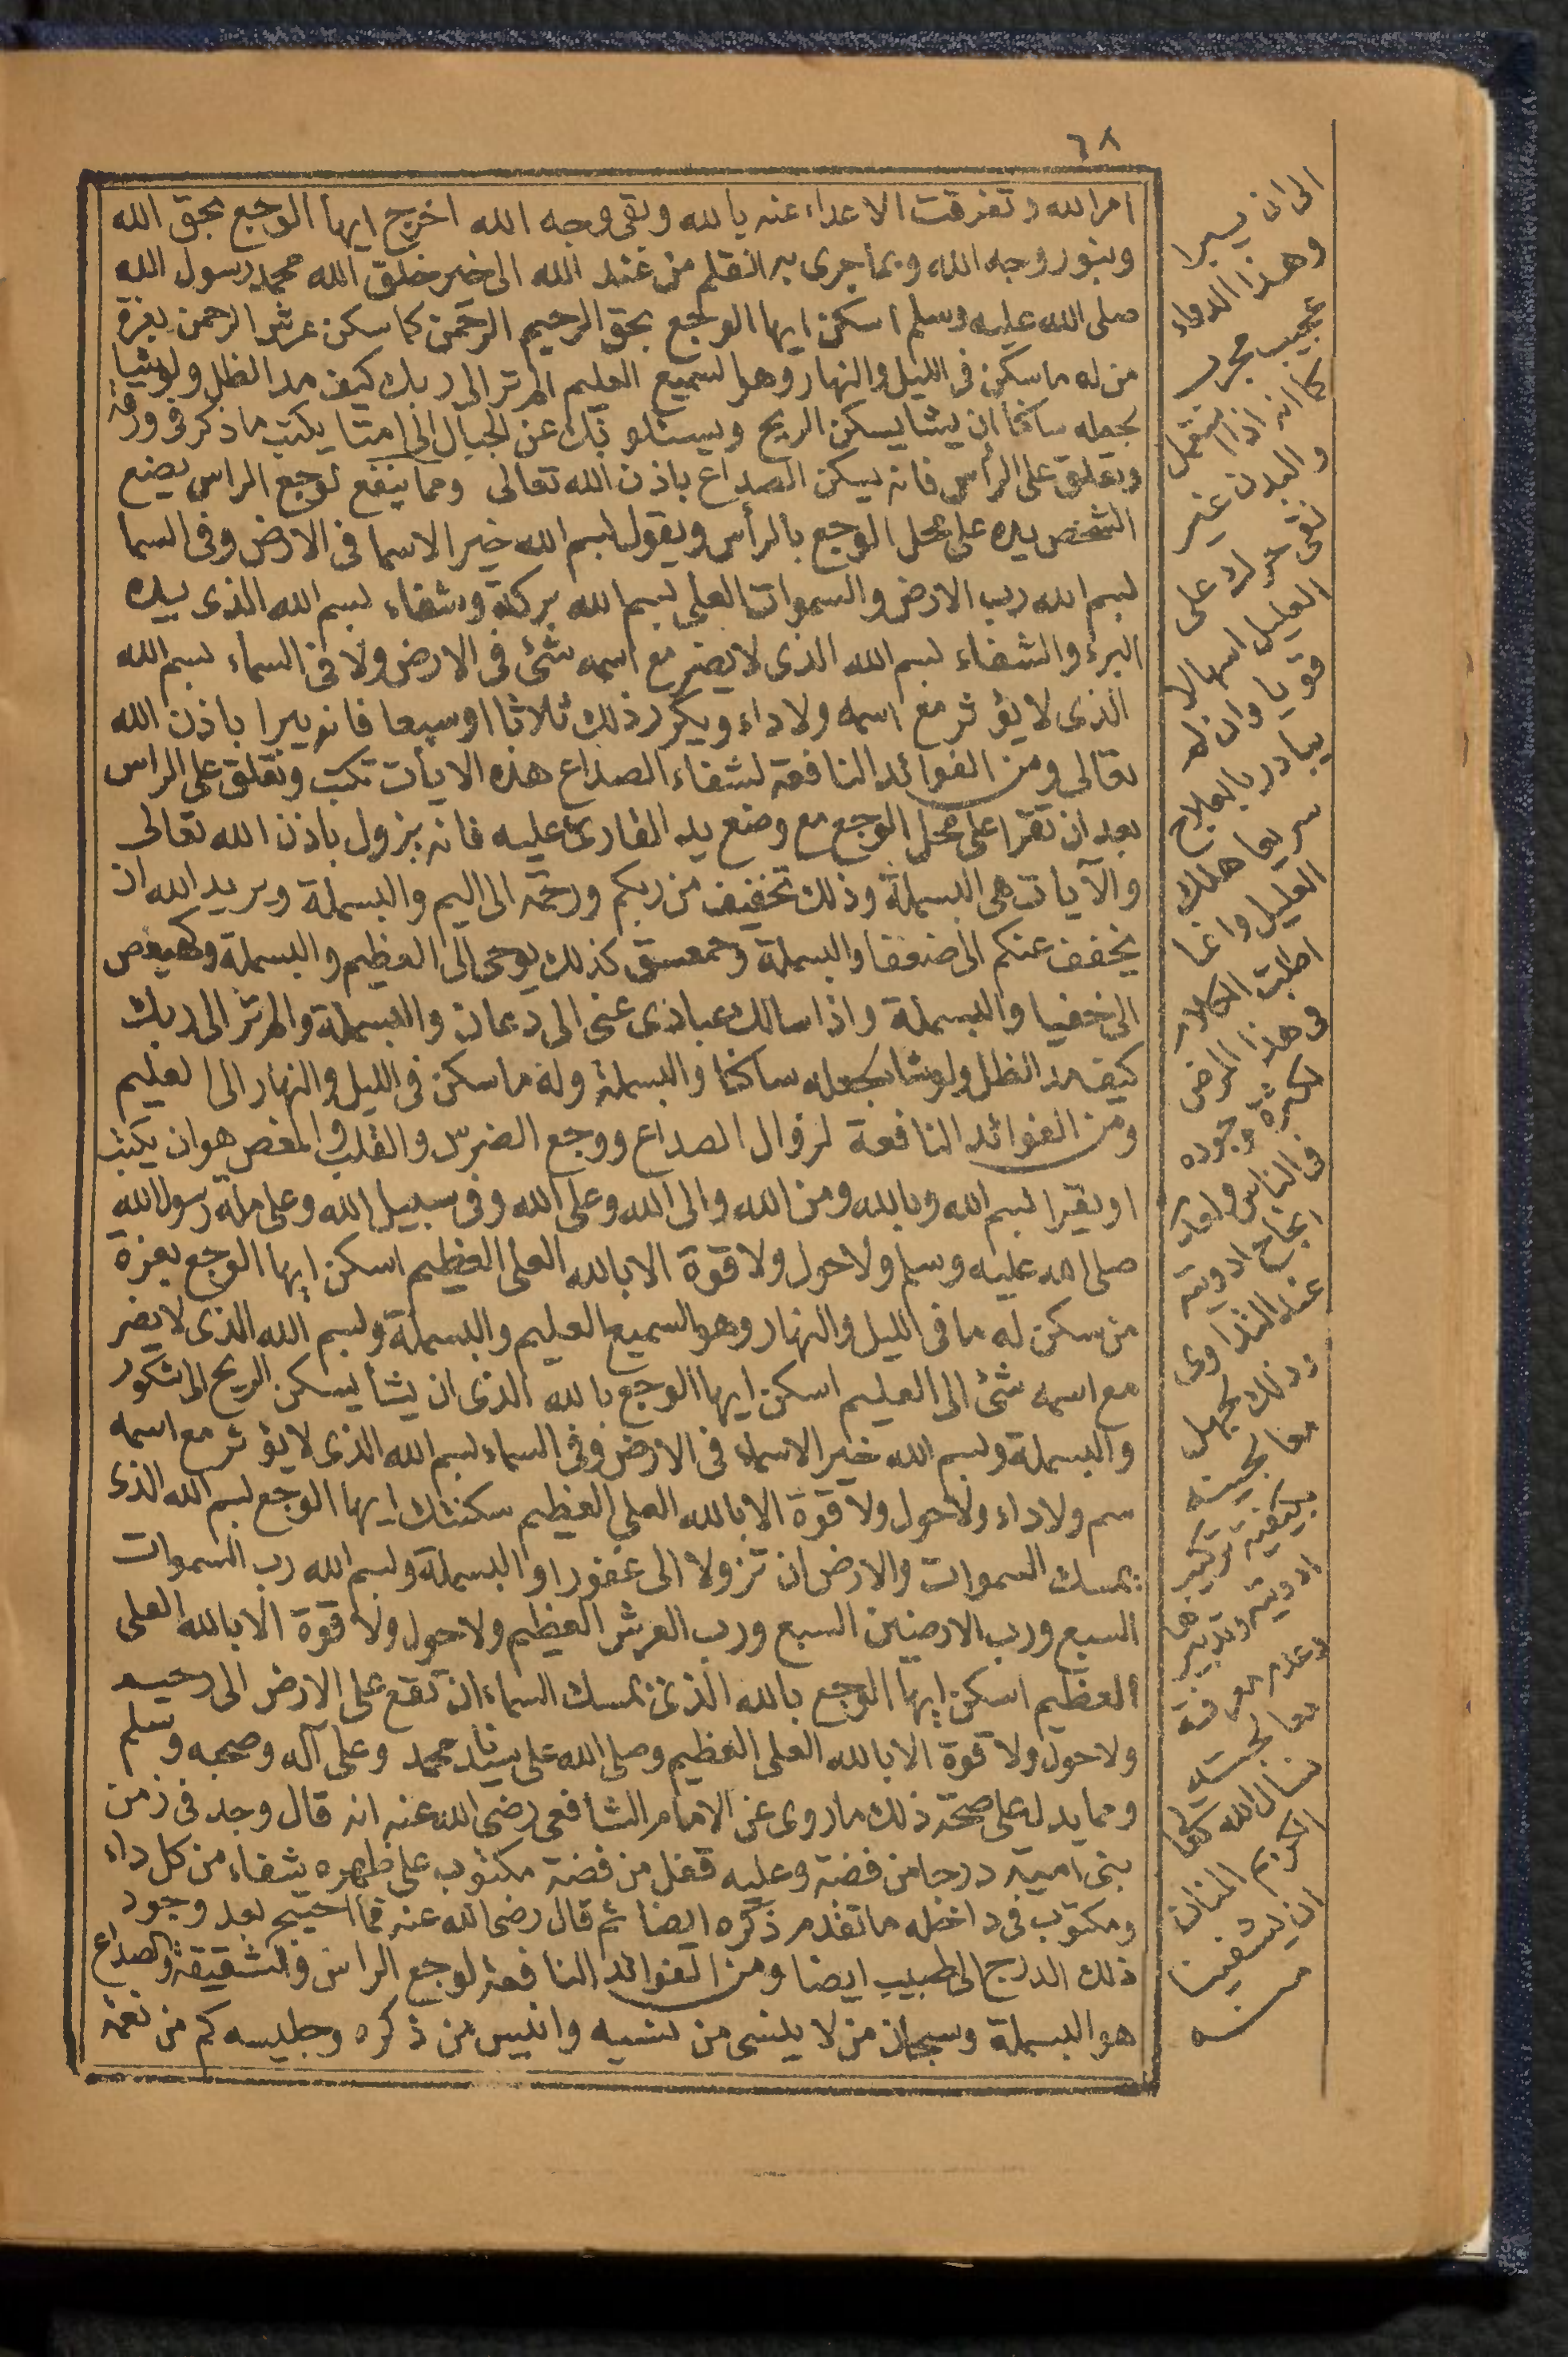 ٦٨
امر الله وتفرقت الاعداء عنه يا لله وبقى وجه الله اخرج ايها الوجع بحق الله
وبنور وجه الله وبما جرى به القلم من عند الله الى خير خلق الله محمد رسول الله
صلى الله عليه وسلم اسكن ايها الوجع بحق الرحيم الرحمن كما سكن عرش الرحمن بعزة
من له ما سكن فى الليل والنهار وهو السميع العليم الم تر الى ربك كيف مد الظل ولو يشا
لجعله ساكنا ان يشا يسكن الريح ويسئلونك عن الجبال الى امتا يكتب ما ذكر فى ورقة
ويعلق على الرأس فانه يسكن الصداع باذن الله تعالى ومما ينفع لوجع الراس يضع
الشخص يده على محل الوجع بالرأس ويقول بسم الله خير الاسما فى الارض وفى السما
بسم الله رب الارض والسموات العلى بسم الله بركة وشفاء بسم الله الذى بيده
البرء والشفاء بسم الله الذى لا يضر مع اسمه شئ فى الارض ولا فى السماء بسم الله
الذى لا يؤثر مع اسمه ولا داء ويكرر ذلك ثلاثا او سبعا فانه يبرا باذن الله
تعالى ومن الفوائد النافعة لشفاء الصداع هذه الايات تكتب وتعلق على الراس
بعد ان تقرا على محل الوجع مع وضع يد القارئ عليه فانه يزول باذن الله تعالى
والآيات هى البسملة وذلك تخفيف من ربكم ورحمة الى اليم والبسملة ويريد الله ان
يخفف عنكم الى ضعفا والبسملة وحمعسق كذلك يوحى الى العظيم والبسملة وكهيعص
الى خفيا والبسملة واذا سالك عبادى عنى الى دعان والبسملة والم تر الى ربك
كيف مد الظل ولو شا لجعله ساكنا والبسملة وله ما سكن فى الليل والنهار الى العليم
ومن الفوائد النافعة لزوال الصداع ووجع الضرس والقلب والمغص هو ان يكتب
او يقرا بسم الله وبالله ومن الله والى الله وعلى الله وفى سبيل الله وعلى ملة رسول الله
صلى الله عليه وسلم ولا حول ولا قوة الا بالله العلى العظيم اسكن ايها الوجع بعزة
من سكن له ما فى الليل والنهار وهو السميع العليم والبسملة وبسم الله الذى لا يضر
مع اسمه شئ الى العليم اسكن ايها الوجع بالله الذى ان يشأ يسكن الريح الى شكور
والبسملة وبسم الله خير الاسماء فى الارض وفى السماء بسم الله الذى لا يؤثر مع اسمه
سم ولا داء ولا حول ولا قوة الا بالله العلى العظيم سكنتك ايها الوجع بسم الله الذى
يمسك السموات والارض ان تزولا الى غفورا والبسملة وبسم الله رب السموات
السبع ورب الارضين السبع ورب العرش العظيم ولا حول ولا قوة الا بالله العلى
العظيم اسكن ايها الوجع بالله الذى يمسك السماء ان تقع على الارض الى رحيم
ولا حول ولا قوة الا بالله العلى العظيم وصلى الله على سيدنا محمد وعلى آله وصحبه وسلم
ومما يدل على صحة ذلك ما روى عن الامام الشافعى رضى الله عنه انه قال وجد فى زمن
بنى امية درجا من فضة وعليه قفل من فضة مكتوب على ظهره شفاء من كل داء
ومكتوب فى داخله ما تقدم ذكره ايضا ثم قال رضى الله عنه فما احتيج بعد وجود
ذلك الدرج الى طبيب ايضا ومن الفوائد النافعة لوجع الراس والشقيقة والصداع
هو البسملة وسبحان من لا ينسى من نسيه وانيس من ذكره وجليسه كم من نعمة
الى ان يبرا
وهذا الدواء
عجيب مجرب
كما انه اذا استعمل
والبدن غير
نقى حرك على
العليل اسهالا
قويا وان لم
يبادر بالعلاج
سريعا هلك
العليل وانما
اطلت الكلام
فى هذا المرض
لكثرة وجوده
فى الناس ولعدم
انجاح ادويته
عند التداوى
وذلك لجهل
معالجينه
بكيفية تركيب
ادويته وتدبيرها
وعدم معرفة
معالجته
نسال الله
الكريم المنان
ان يشفينا
منه